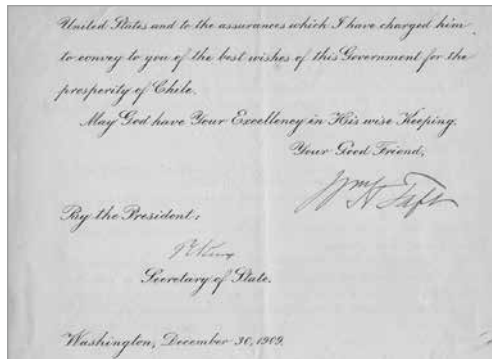 United States and to the assurances which I have charged him
to convey to you of the best wishes of this Government for the
prosperity of Chile.
May God have Your Excellency in His wise Keeping.
Your Good Friend,
Wm H Taft
By the President:
Secretary of State.
Washington, December 30, 1909.